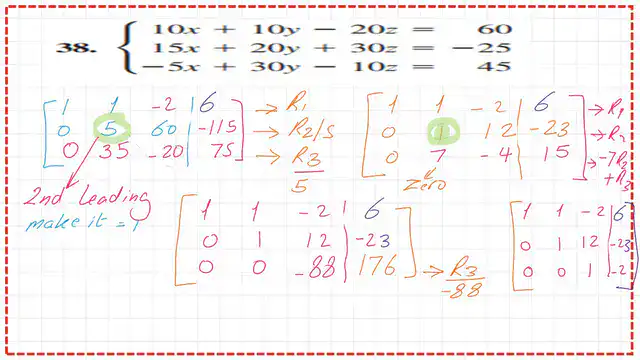 38. { 10x + 10y − 20z = 60
15x + 20y + 30z = −25
−5x + 30y − 10z = 45
[ 1 1 -2 | 6 ] → R1
[ 0 5 60 | -115 ] → R2/5
[ 0 35 -20 | 75 ] → R3/5
2nd Leading
make it = 1
[ 1 1 -2 | 6 ] → R1
[ 0 1 12 | -23 ] → R2
[ 0 7 -4 | 15 ] → -7R2 + R3
Zero
[ 1 1 -2 | 6 ]
[ 0 1 12 | -23 ]
[ 0 0 -88 | 176 ] → R3/-88
[ 1 1 -2 | 6 ]
[ 0 1 12 | -23 ]
[ 0 0 1 | -2 ]